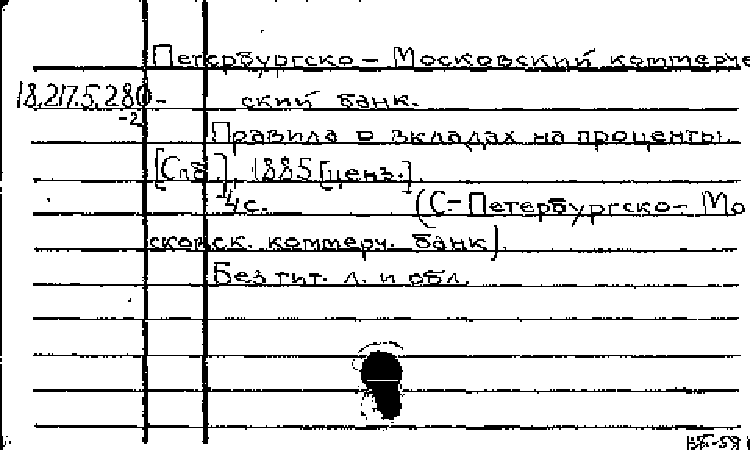 Петербургско – Московский коммерче
18.275.280- ский банк.
-2
Правила о вкладах на проценты.
[Спб.], 1885 [ценз.].
4с. (С-Петербургско- Мо
сковск. коммерч. банк).
Без тит. л. и обл.